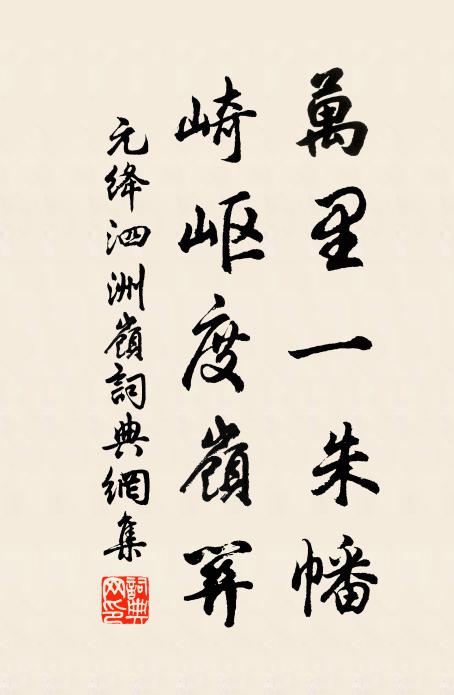 萬里一朱幡
崎岖度嶺
元绛泗洲嶺詞典網集
詞典网印